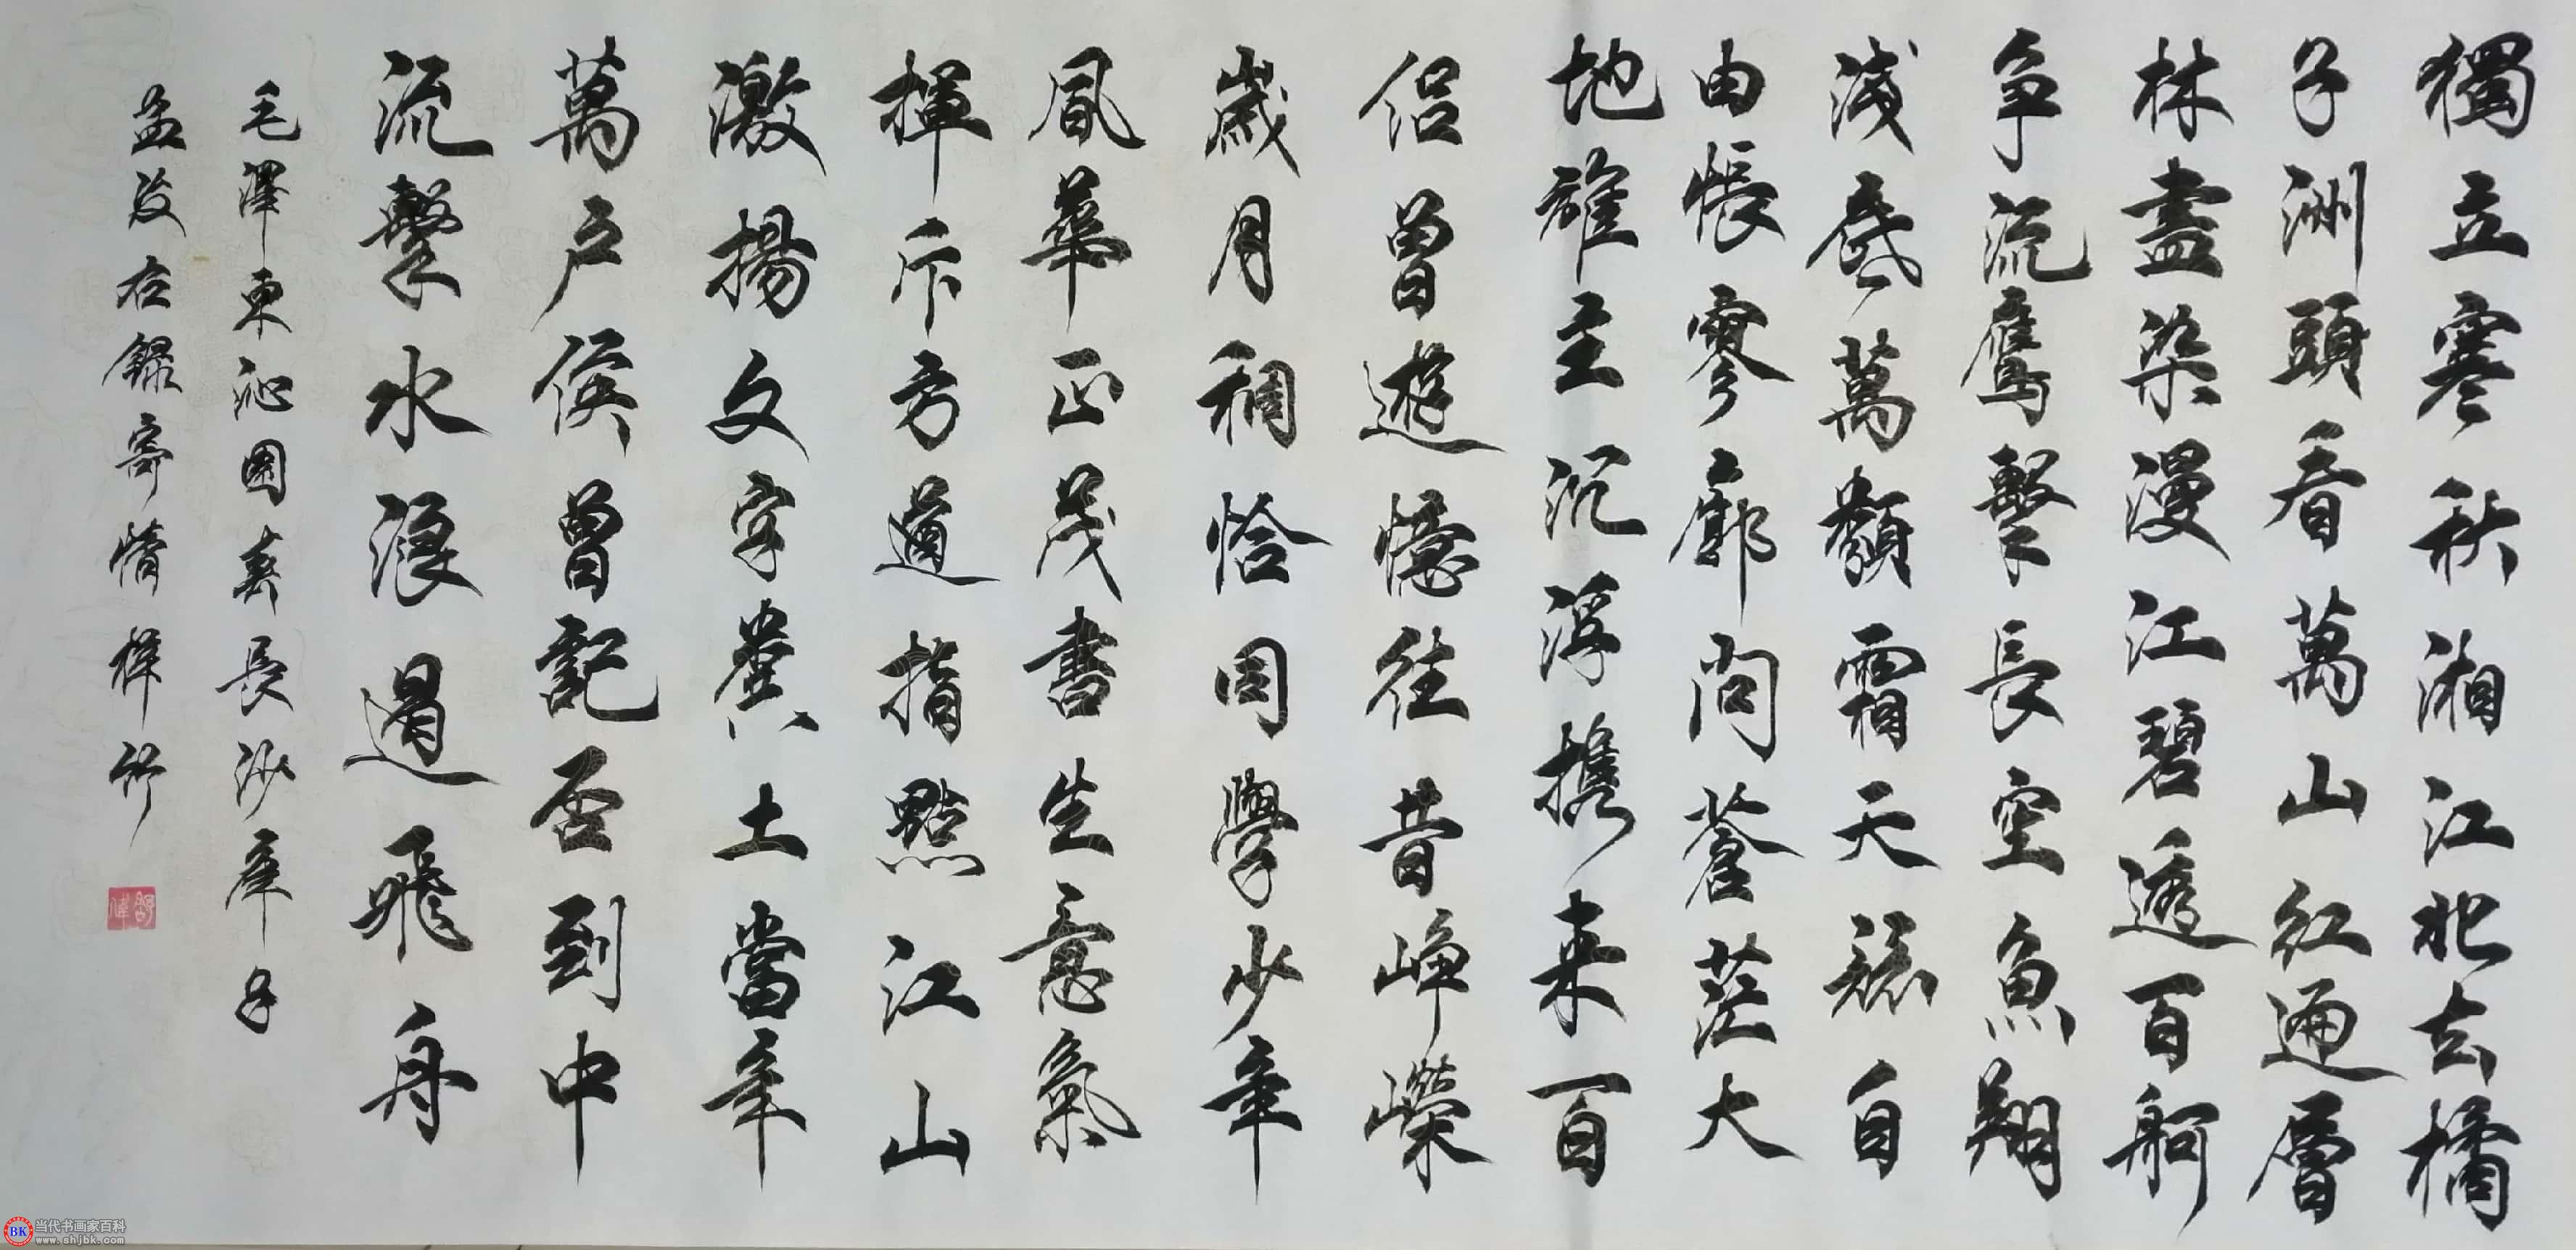 獨立寒秋湘江北去橘
子洲頭看萬山紅遍層
林盡染漫江碧透百舸
争流鷹擊長空魚翔
淺底萬類霜天競自
由悵寥廓問蒼茫大
地誰主沉浮携来百
侣曾遊憶往昔崢嶸
歲月稠恰同學少年
風華正茂書生意氣
揮斥方遒指點江山
激揚文字糞土當年
萬户侯曾記否到中
流擊水浪遏飛舟
毛澤東沁園春長沙庚子
孟夏右錄寄情
BK
当代书画家百科
www.shjbk.com